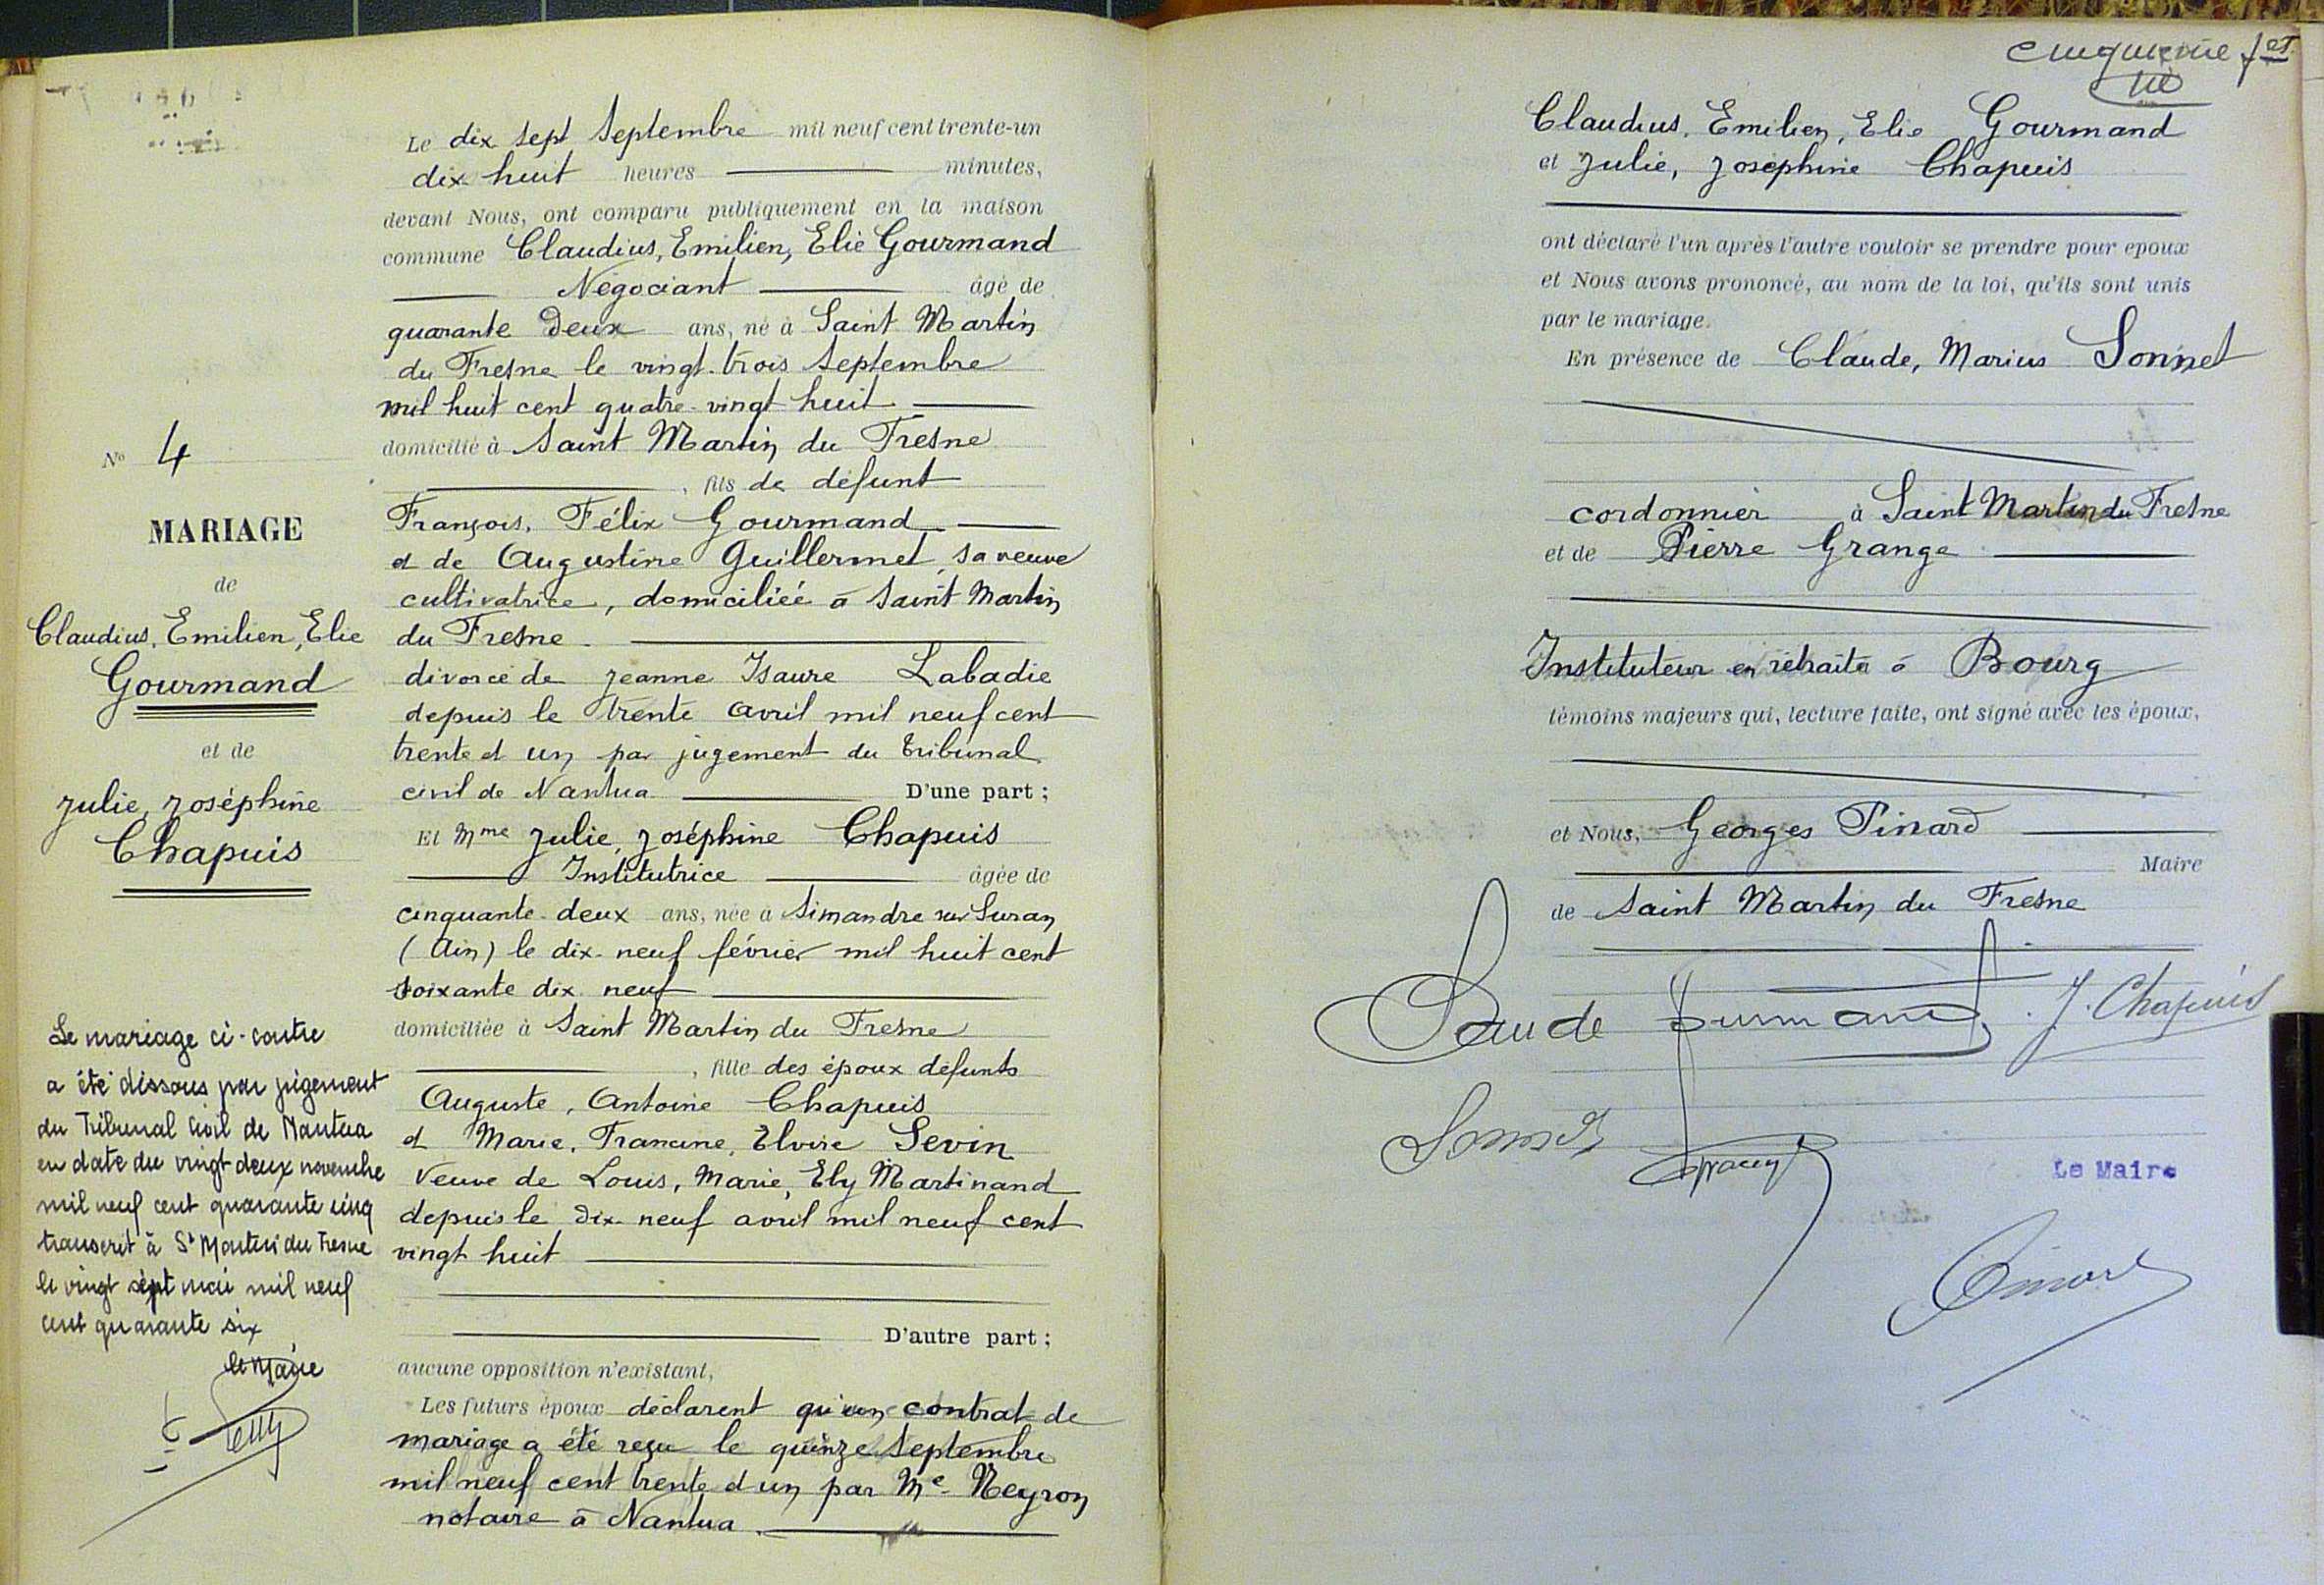 N° 4
MARIAGE
de
Claudius, Emilien, Elie
Gourmand
et de
Julie, Joséphine
Chapuis
Le mariage ci-contre
a été dissous par jugement
du Tribunal Civil de Nantua
en date du vingt deux novembre
mil neuf cent quarante cinq
transcrit à St Martin du Fresne
le vingt sept mai mil neuf
cent quarante six
le Maire
Le dix sept Septembre mil neuf cent trente-un
dix-huit heures minutes,
devant Nous, ont comparu publiquement en la maison
commune Claudius, Emilien, Elie Gourmand
Négociant âgé de
quarante deux ans, né à Saint Martin
du Fresne le vingt-trois Septembre
mil huit cent quatre-vingt huit
domicilié à Saint Martin du Fresne
, fils de défunt
François, Félix Gourmand
et de Augustine Guillermet, sa veuve
cultivatrice, domiciliée à Saint Martin
du Fresne.
divorcé de Jeanne Isaure Labadie
depuis le trente avril mil neuf cent
trente et un par jugement du tribunal
civil de Nantua D'une part ;
Et Mme Julie, Joséphine Chapuis
Institutrice âgée de
cinquante-deux ans, née à Simandre sur Suran
(Ain) le dix-neuf février mil huit cent
soixante dix neuf
domiciliée à Saint Martin du Fresne
, fille des époux défunts
Auguste, Antoine Chapuis
et Marie, Francine, Elvire Sevin
Veuve de Louis, Marie, Ely Martinand
depuis le dix-neuf avril mil neuf cent
vingt huit
D'autre part ;
aucune opposition n'existant,
Les futurs époux déclarent qu'un contrat de
mariage a été reçu le quinze Septembre
mil neuf cent trente et un par Me Neyron
notaire à Nantua.
cinquième fet
Claudius, Emilien, Elie Gourmand
et Julie, Joséphine Chapuis
ont déclaré l'un après l'autre vouloir se prendre pour époux
et Nous avons prononcé, au nom de la loi, qu'ils sont unis
par le mariage.
En présence de Claude, Marius Sonnet
cordonnier à Saint Martin du Fresne
et de Pierre Grange
Instituteur en retraite à Bourg
témoins majeurs qui, lecture faite, ont signé avec les époux,
et Nous, Georges Pinard
Maire
de Saint Martin du Fresne
J. Chapuis
Sonnet
Le Maire
Pinard